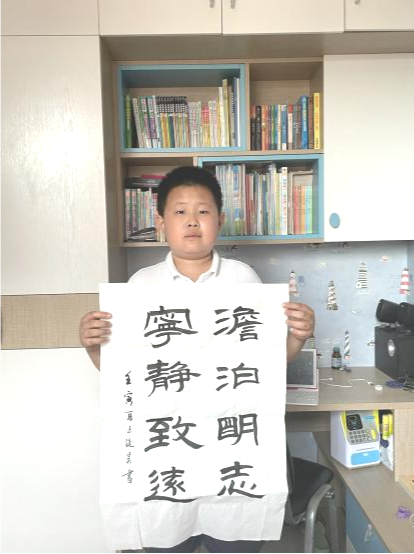 澹泊明志
寧靜致遠
壬寅夏
書